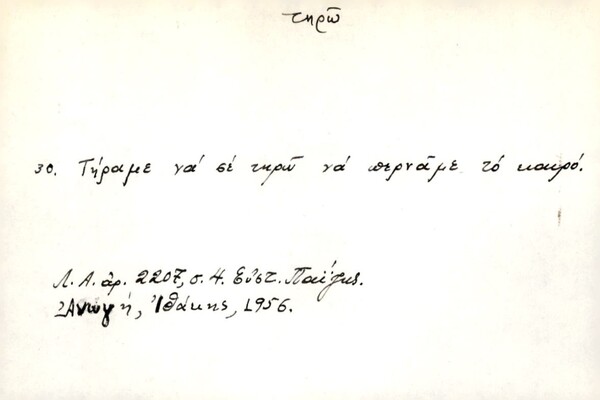 τηρῶ
30. Τήραμε νά σέ τηρῶ νά περνᾶμε τό καιρό.
Λ. Α. ἀρ. 2207, σ. 4. Εὐστ. Παΐζης.
Ἀνωγή, Ἰθάκης, 1956.